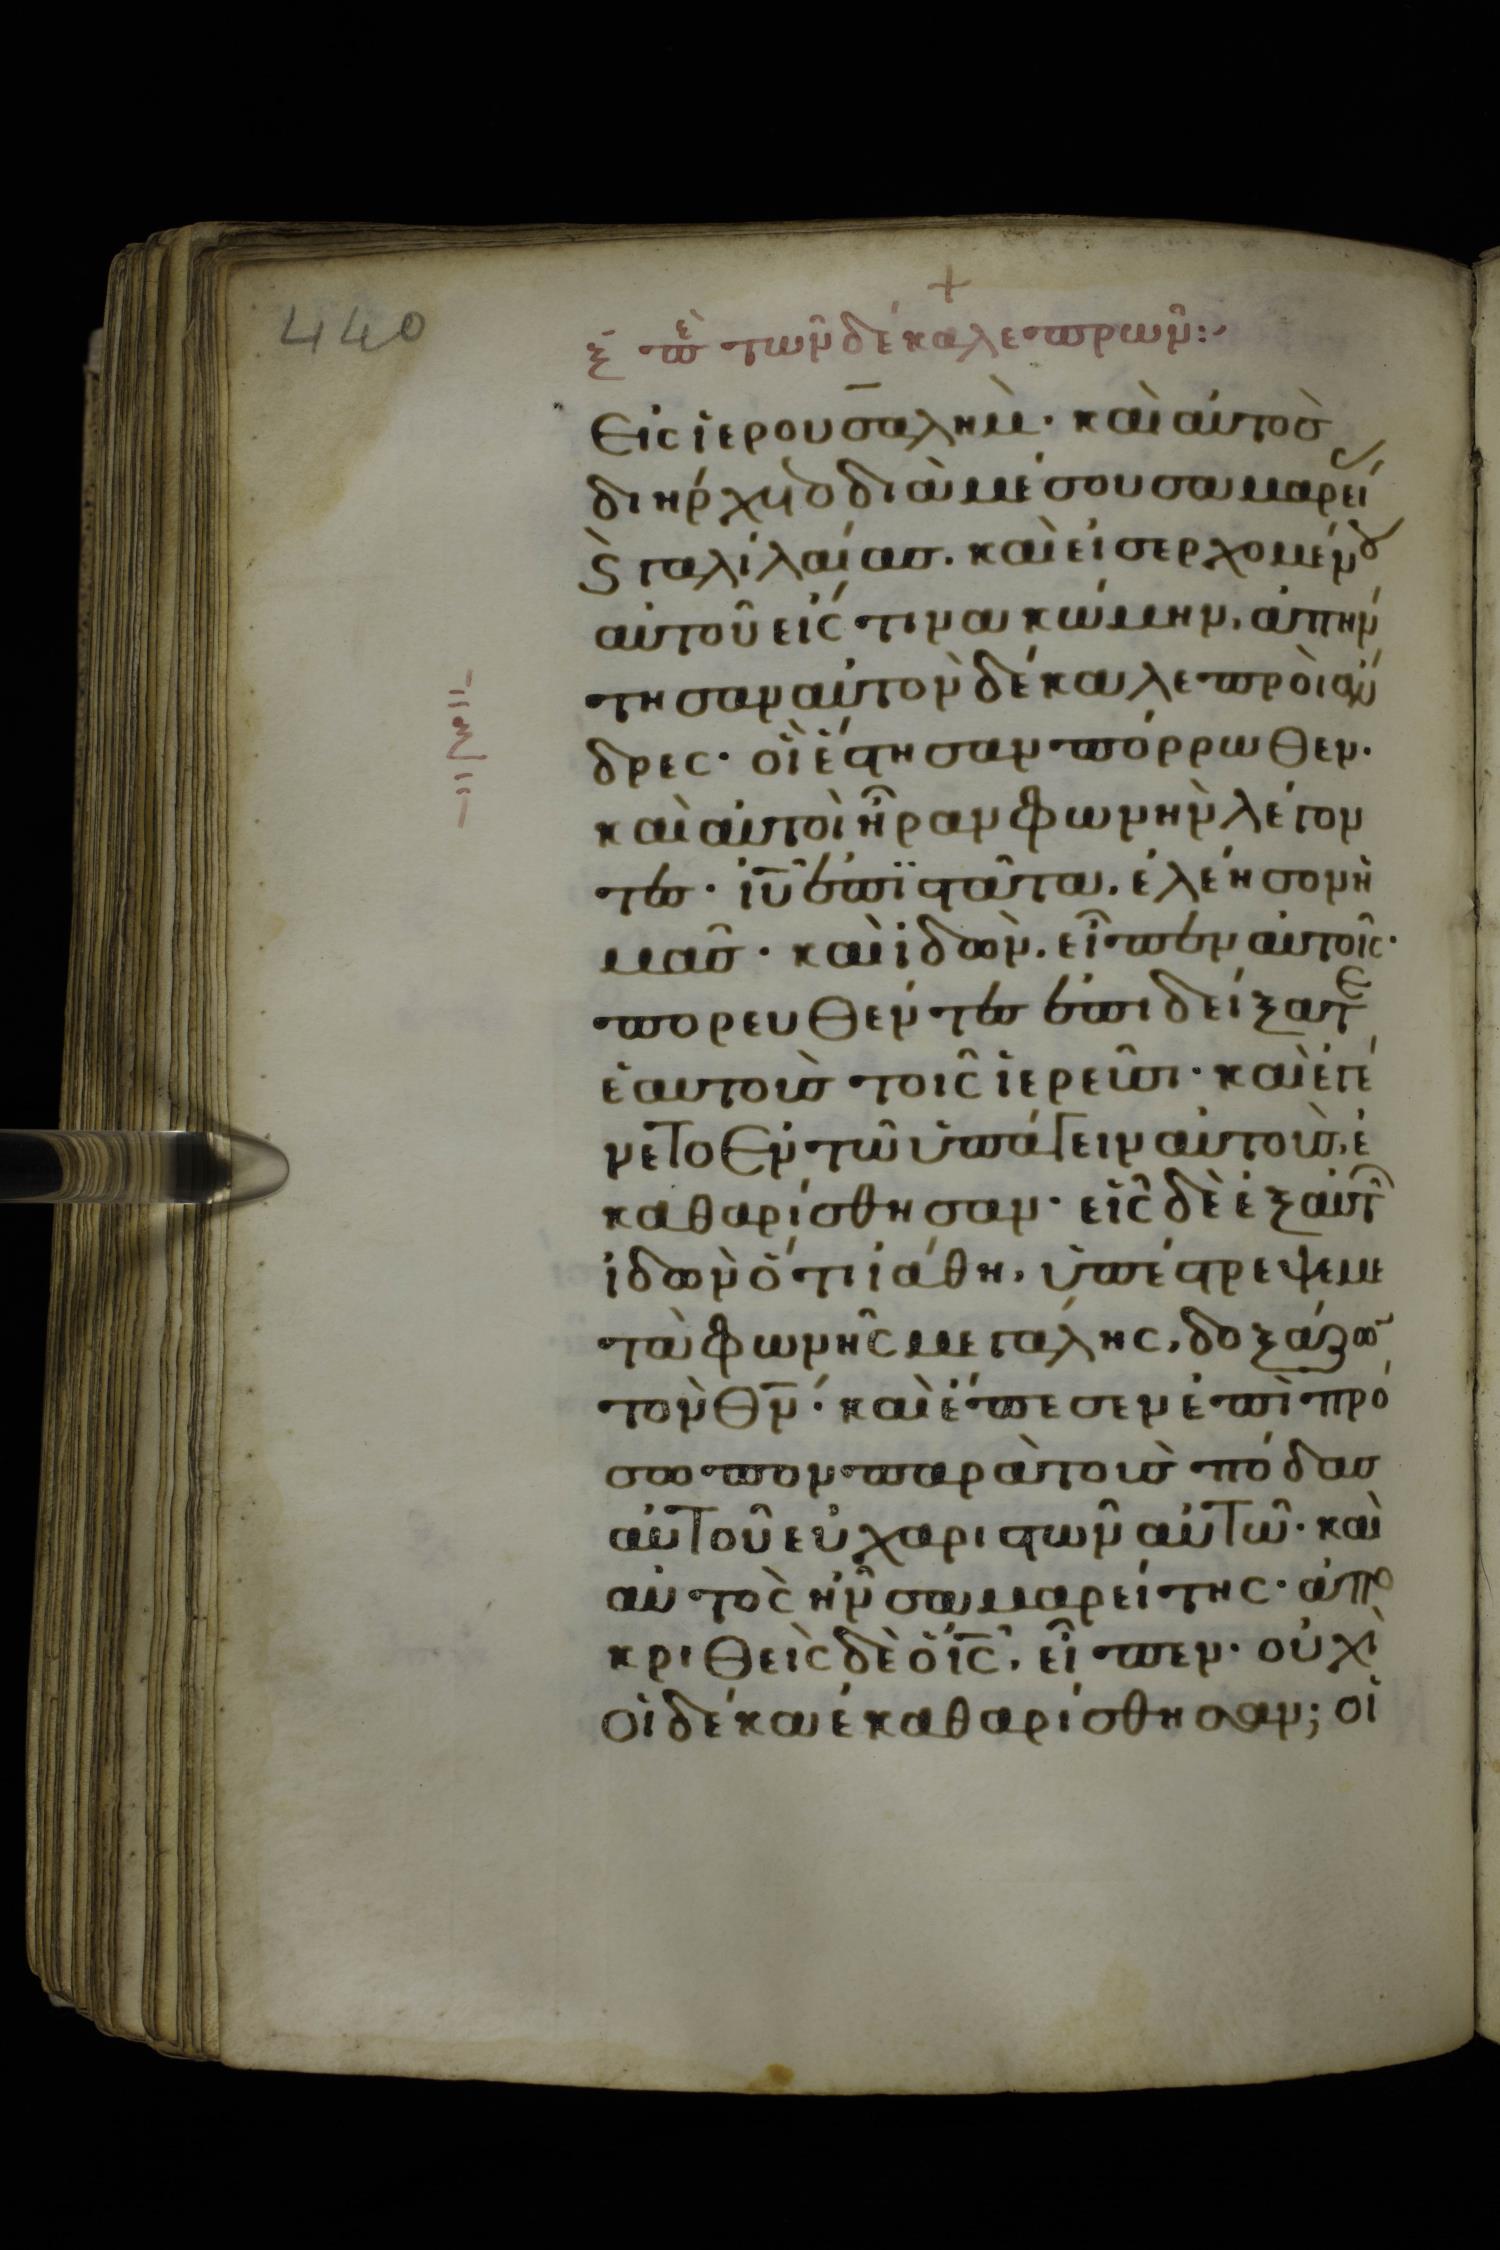 440
+
ξ̄ πὲ̣ τῶν δέκα λεπρῶν:·
Εἰς ἱερουσαλήμ̄. καὶ αὐτὸς
διήρχετο διὰ μέσου σαμαρεί
ϛ̀ γαλιλαίας. καὶ εἰσερχομένου
αὐτοῦ εἴς τινα κώμην, ἀπήν
τησαν αὐτὸν δέκα λεπροὶ ἄν
δρες· οἳ ἔστησαν πόρρωθεν.
καὶ αὐτοὶ ἦραν φωνὴν λέγον
τες· ἰῦ ἐπιστάτα, ἐλέησον ἡ
μᾶς· καὶ ἰδὼν, εἶπεν αὐτοῖς·
πορευθέντες ἐπιδείξατε
ἑαυτοὺς τοῖς ἱερεῦσι· καὶ ἐγέ
νετο Ἐν τῶ ὑπάγειν αὐτοὺς, ἐ
καθαρίσθησαν· εἷς δὲ ἐξ αὐτῶν
ἰδὼν ὅτι ἰάθη, ὑπέστρεψε με
τὰ φωνῆς μεγάλης, δοξάζων
τὸν θν̄· καὶ ἔπεσεν ἐπὶ πρό
σωπον παρὰ τοὺς πόδας
αὐτοῦ εὐχαριστῶν αὐτῶ· καὶ
αὐτὸς ἦν σαμαρείτης· ἀπο
κριθεὶς δὲ ὁ ἰς̄, εἶπεν· οὐχὶ
οἱ δέκα ἐκαθαρίσθησαν; οἱ